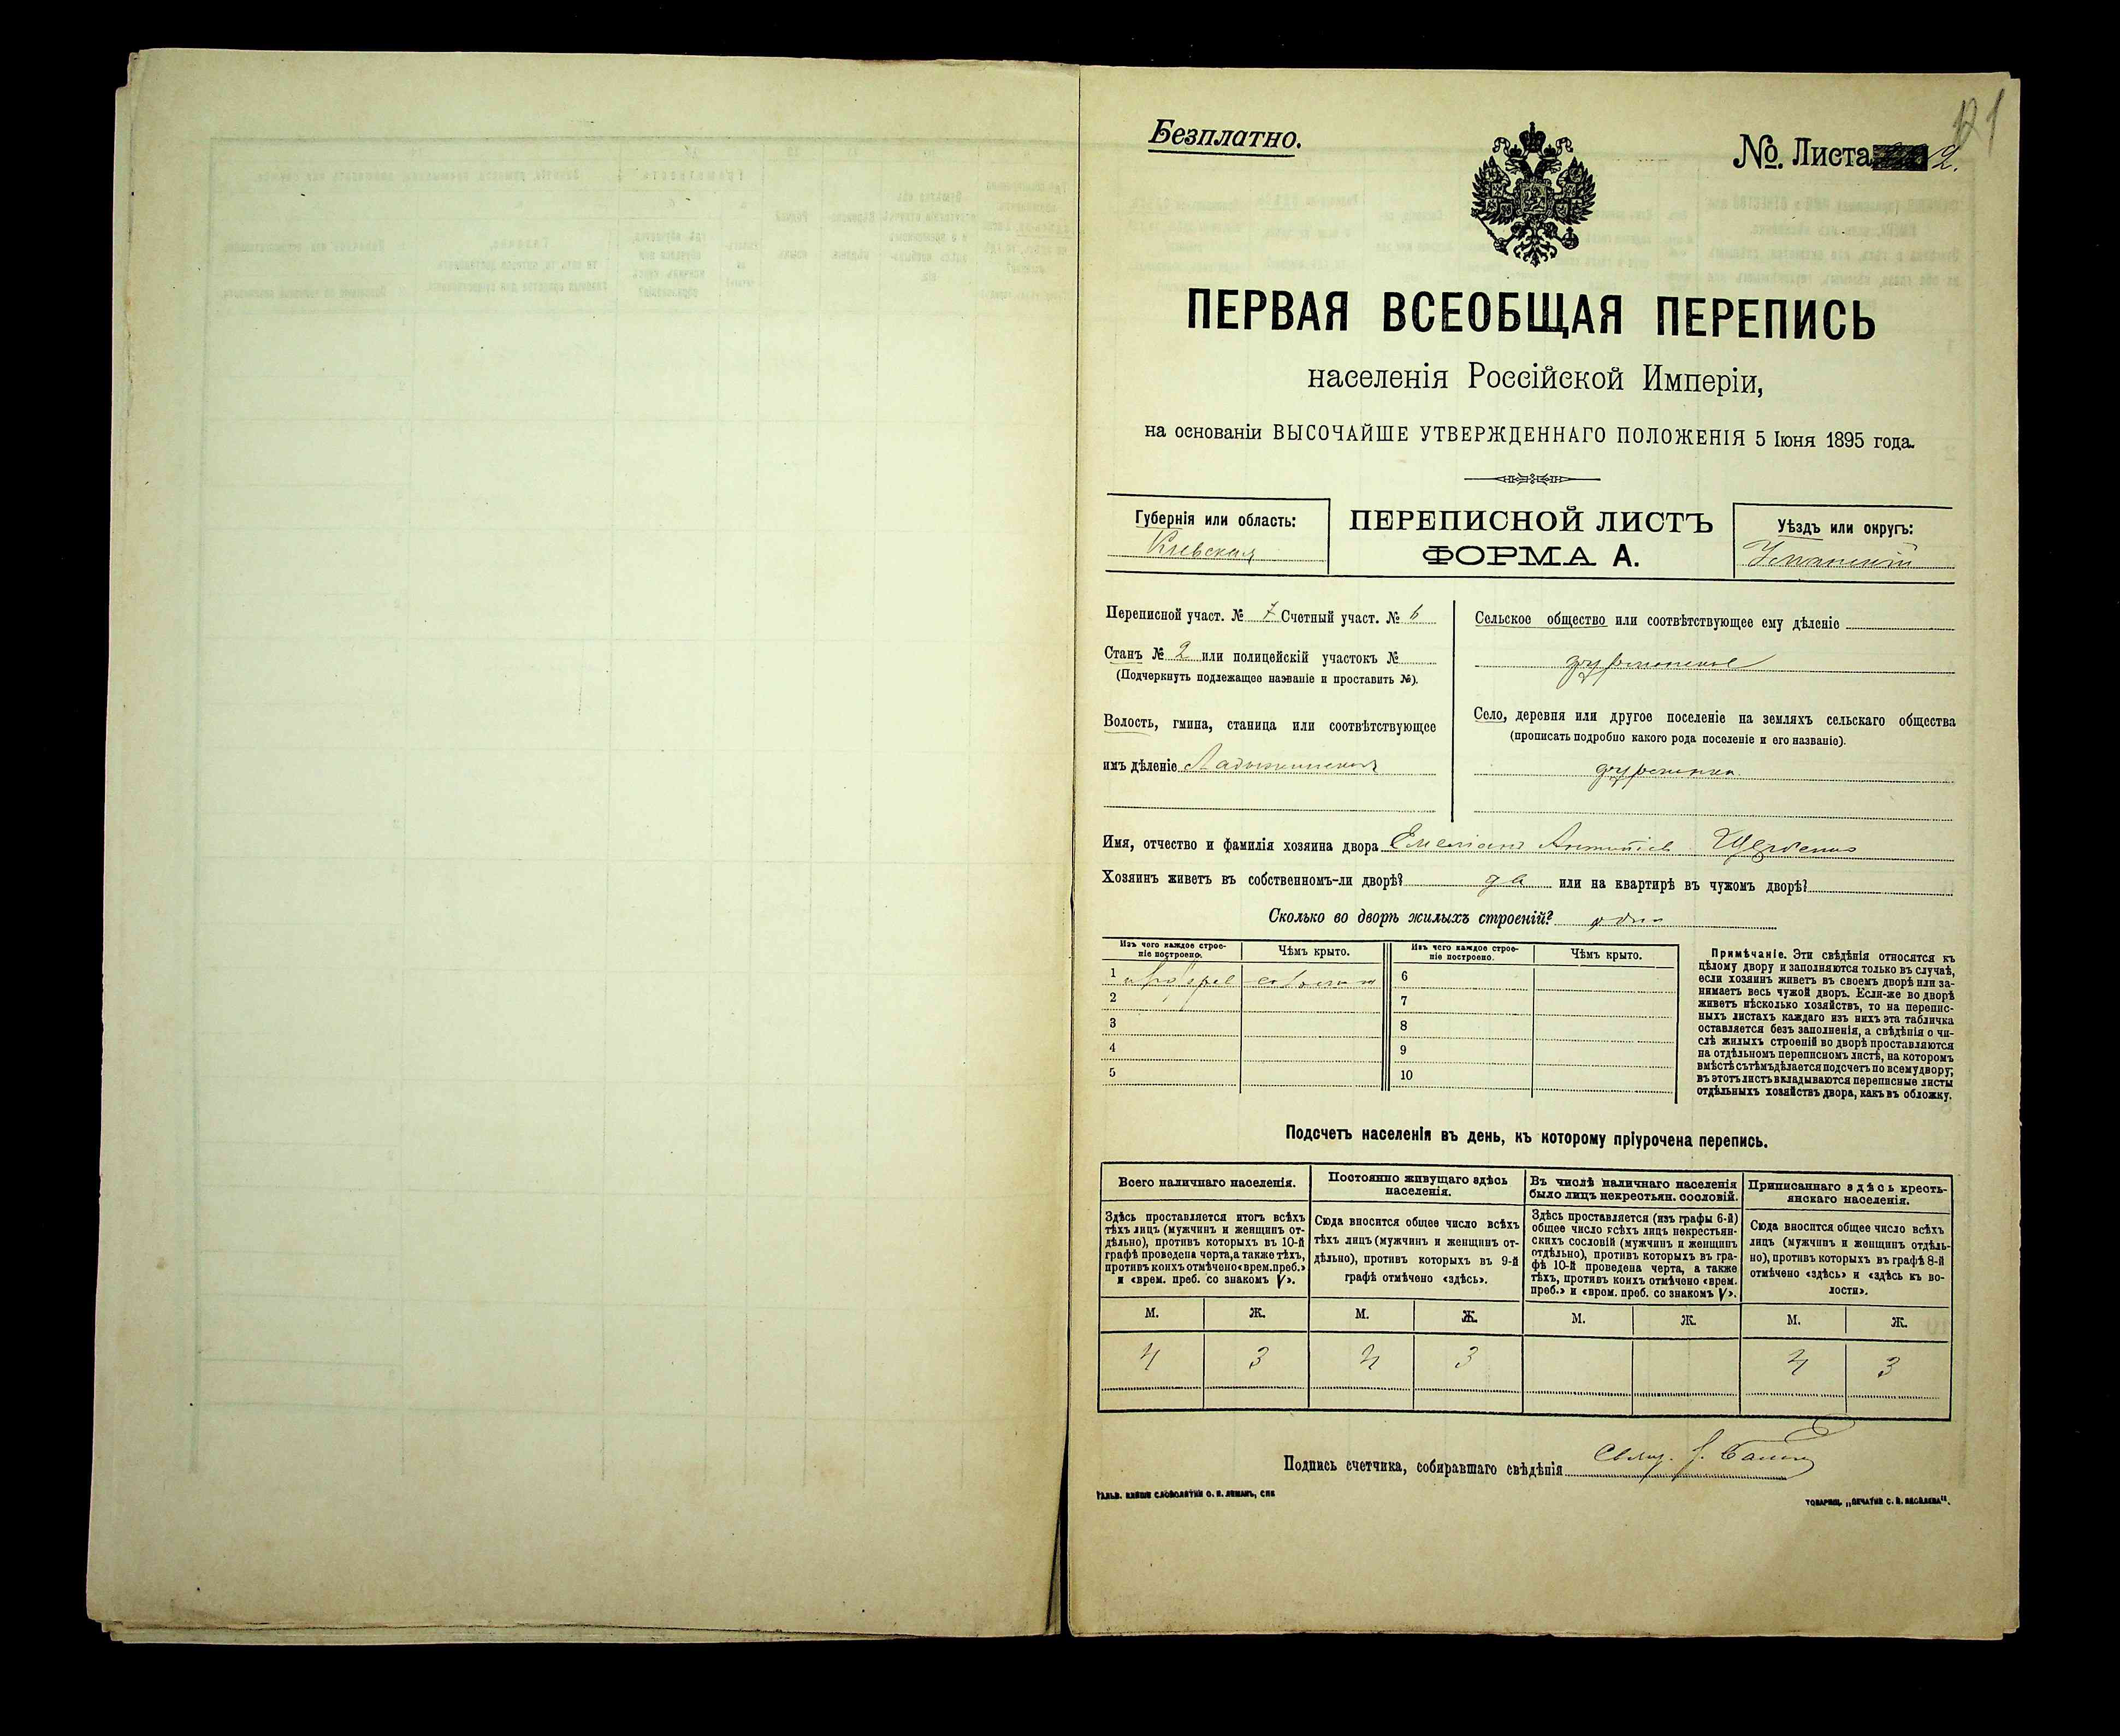 Безплатно.
№. Листа 2.
ПЕРВАЯ ВСЕОБЩАЯ ПЕРЕПИСЬ
населенія Россійской Имперіи,
на основаніи ВЫСОЧАЙШЕ УТВЕРЖДЕННАГО ПОЛОЖЕНІЯ 5 Іюня 1895 года.
Губернія или область:
Кіевская
ПЕРЕПИСНОЙ ЛИСТЪ
ФОРМА А.
Уѣздъ или округъ:
Уманскій
Переписной участ. № 7 Счетный участ. № 6
Станъ № 2 или полицейскій участокъ №
(Подчеркнуть подлежащее названіе и проставить №).
Волость, гмина, станица или соотвѣтствующее
имъ дѣленіе Ладыжинская
Сельское общество или соотвѣтствующее ему дѣленіе
Село, деревня или другое поселеніе на земляхъ сельскаго общества
(прописать подробно какого рода поселеніе и его названіе).
Имя, отчество и фамилія хозяина двора Емеліанъ Антоніевъ
Хозяинъ живетъ въ собственномъ-ли дворѣ? да или на квартирѣ въ чужомъ дворѣ?
Сколько во дворѣ жилыхъ строеній? одно
Изъ чего каждое строе-
ніе построено.
Чѣмъ крыто.
Изъ чего каждое строе-
ніе построено.
Чѣмъ крыто.
1 соломою 6
2 7
3 8
4 9
5 10
Примѣчаніе. Эти свѣдѣнія относятся къ
цѣлому двору и заполняются только въ случаѣ,
если хозяинъ живетъ въ своемъ дворѣ или за-
нимаетъ весь чужой дворъ. Если-же во дворѣ
живетъ нѣсколько хозяйствъ, то на перепис-
ныхъ листахъ каждаго изъ нихъ эта табличка
оставляется безъ заполненія, а свѣдѣнія о чи-
слѣ жилыхъ строеній во дворѣ проставляются
на отдѣльномъ переписномъ листѣ, на которомъ
вмѣстѣ съ тѣмъ дѣлается подсчетъ по всему двору;
въ этотъ листъ вкладываются переписные листы
отдѣльныхъ хозяйствъ двора, какъ въ обложку.
Подсчетъ населенія въ день, къ которому пріурочена перепись.
Всего наличнаго населенія.
Здѣсь проставляется итогъ всѣхъ
тѣхъ лицъ (мужчинъ и женщинъ от-
дѣльно), противъ которыхъ въ 10-й
графѣ проведена черта, а также тѣхъ,
противъ коихъ отмѣчено «врем. преб.»
и «врем. преб. со знакомъ V».
Постоянно живущаго здѣсь
населенія.
Сюда вносится общее число всѣхъ
тѣхъ лицъ (мужчинъ и женщинъ от-
дѣльно), противъ которыхъ въ 9-й
графѣ отмѣчено «здѣсь».
Въ числѣ наличнаго населенія
было лицъ некрестьян. сословій.
Здѣсь проставляется (изъ графы 6-й)
общее число всѣхъ лицъ некрестьян-
скихъ сословій (мужчинъ и женщинъ
отдѣльно), противъ которыхъ въ гра-
фѣ 10-й проведена черта, а также
тѣхъ, противъ коихъ отмѣчено «врем.
преб.» и «врем. преб. со знакомъ V».
Приписаннаго здѣсь кресть-
янскаго населенія.
Сюда вносится общее число всѣхъ
лицъ (мужчинъ и женщинъ отдѣль-
но), противъ которыхъ въ графѣ 8-й
отмѣчено «здѣсь» и «здѣсь къ во-
лости».
М. Ж. М. Ж. М. Ж. М. Ж.
4 3 4 3 4 3
Подпись счетчика, собиравшаго свѣдѣнія Свящ.
ГАЛЬВ. КЛИШЕ СЛОВОЛИТНИ О. И. ЛЕМАНЪ, СПБ
ТОВАРИЩ. „ПЕЧАТНЯ С. П. ЯКОВЛЕВА".